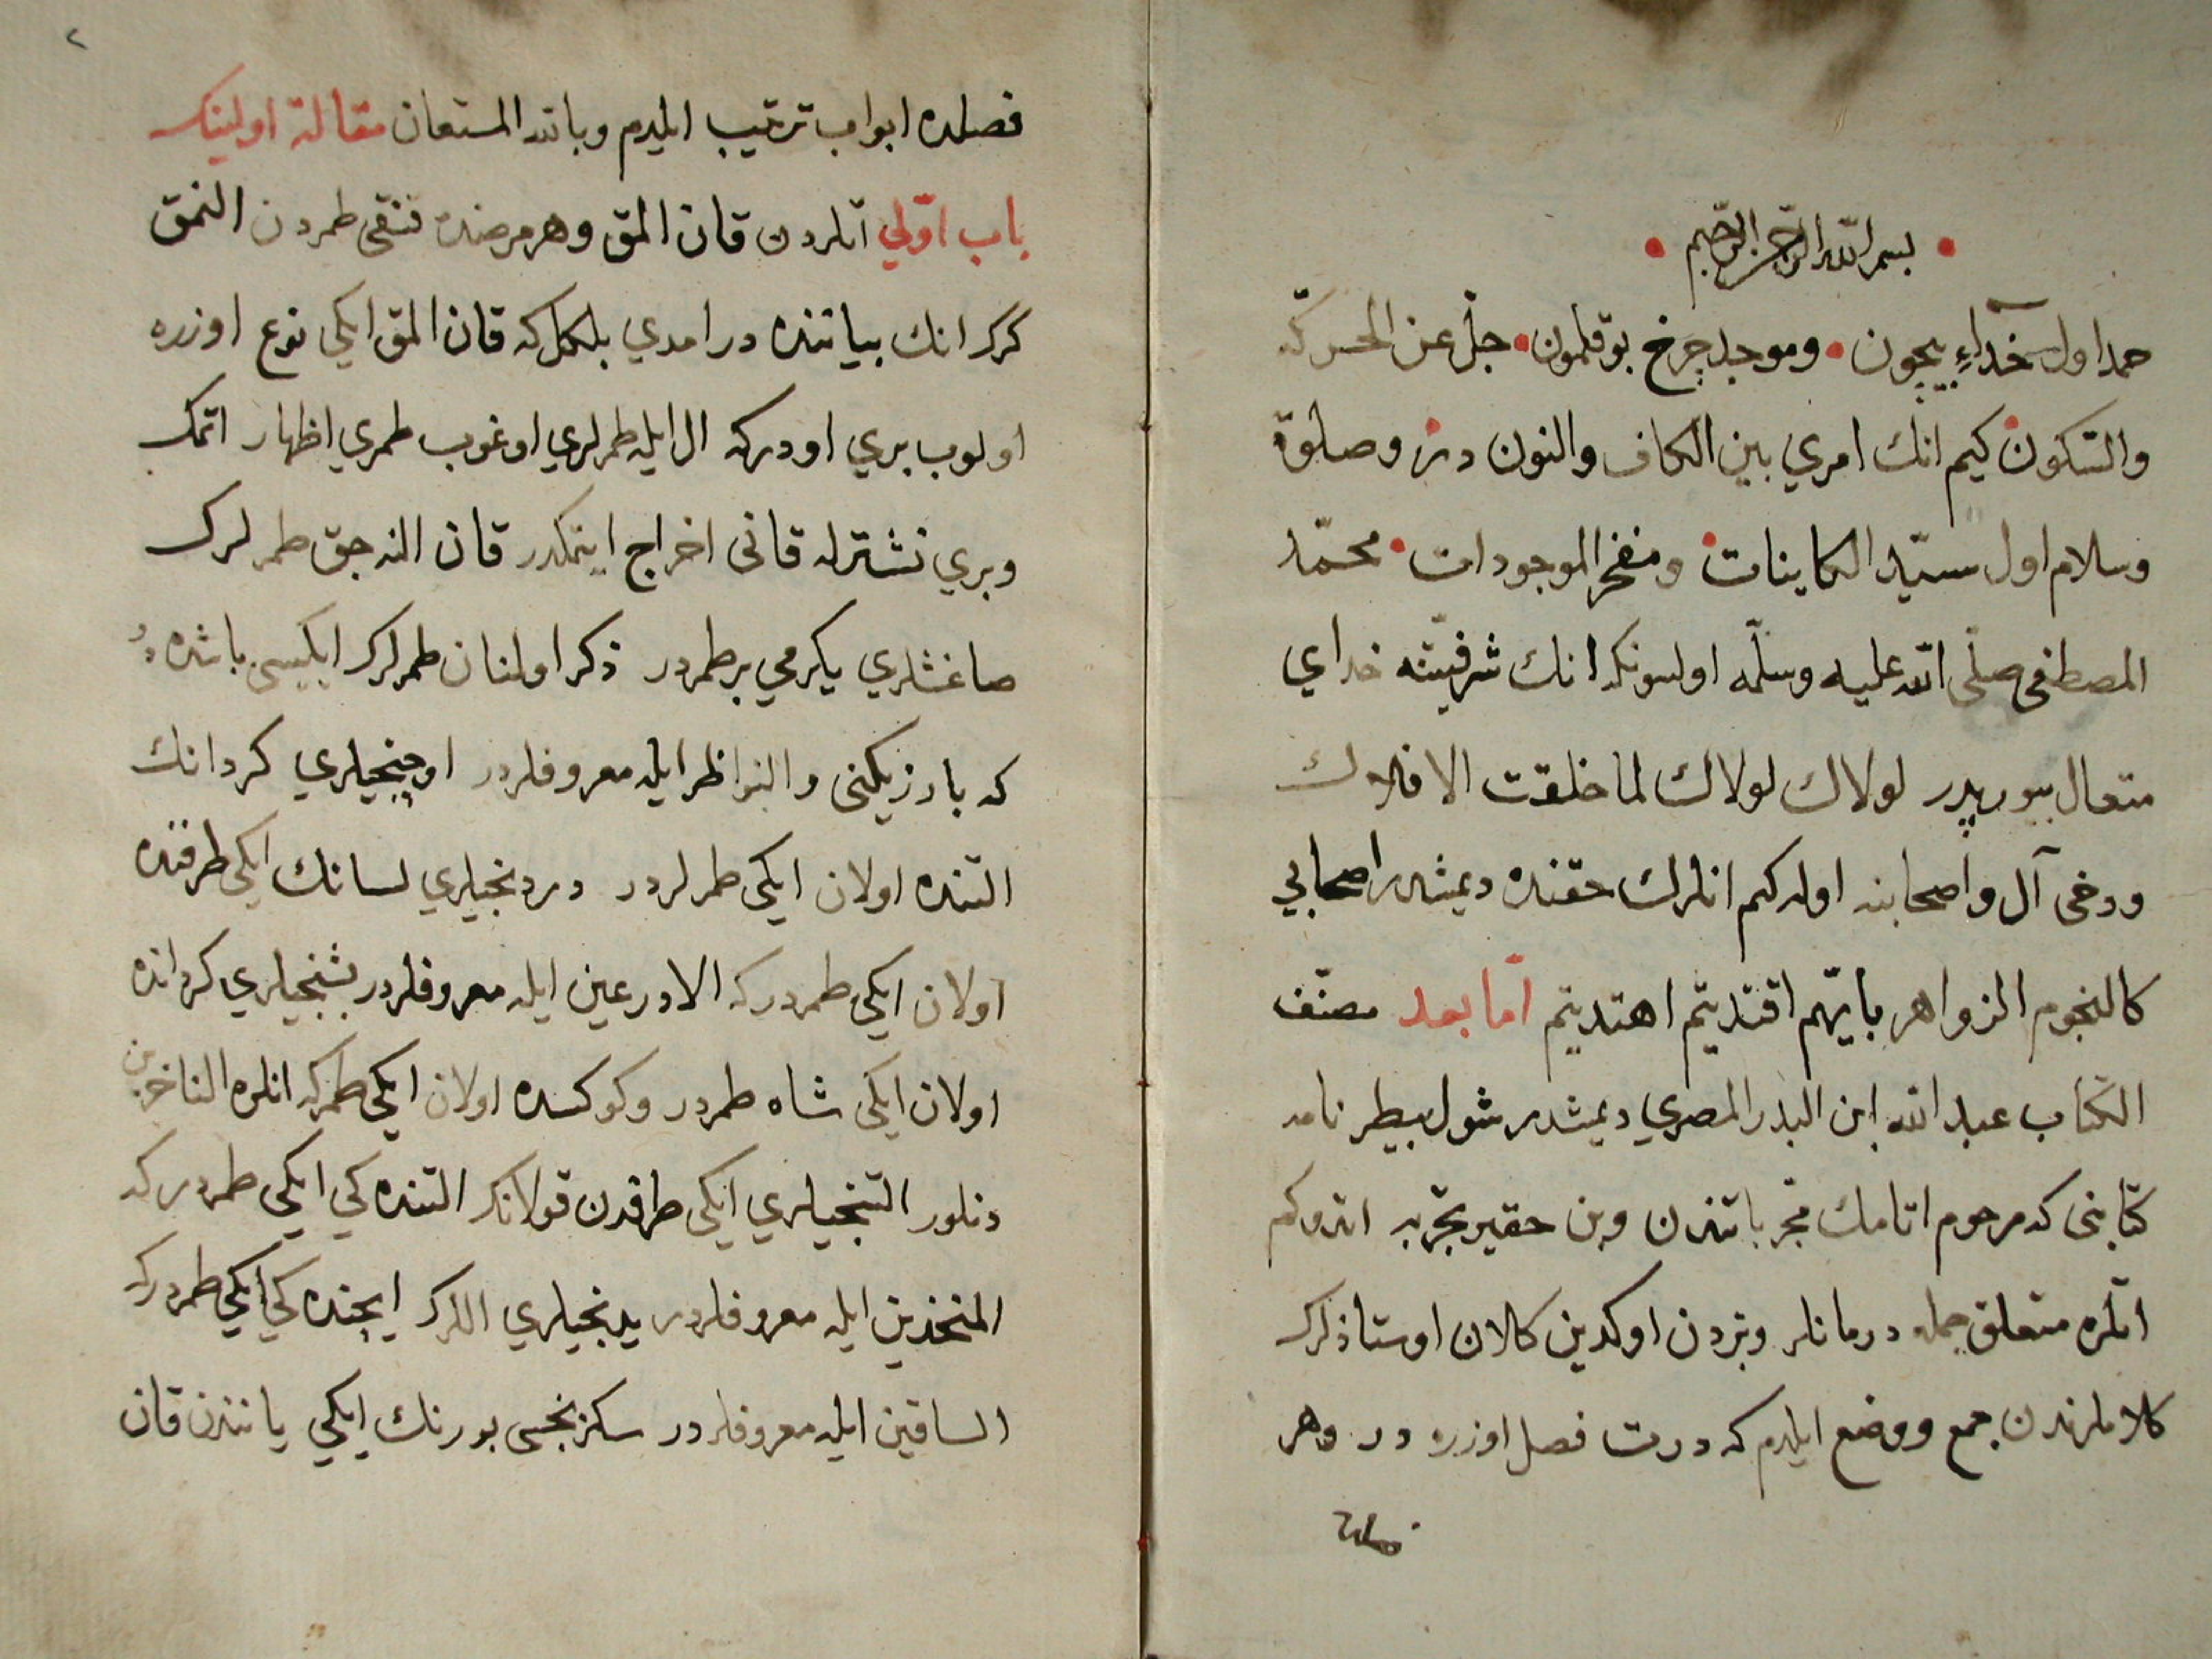 بسم الله الرحمن الرحيم
حمد اول خداء بيچون وموجد چرخ بوقلمون جل عن الحركة
والسكون كيم انك امري بين الكاف والنون در وصلوة
وسلام اول سيد الكاينات ومفخر الموجودات محمد
المصطفى صلى الله عليه وسلمه اولسونكه انك شرفيته خداي
متعال بيوريدر لولاك لولاك لما خلقت الافلاك
ودخى آل واصحابنه اوله كم انلرك حقنده ديمشدر اصحابي
كالنجوم الزواهر بايهم اقتديتم اهتديتم اما بعد مصنف
الكتاب عبد الله ابن البدر المصري ديمشدر شول بيطر نامه
كتابنى كه مرحوم اتامك مجرباتندن وبن حقير تجربه اتدوكم
اتلره متعلق جمله درمانلر وبزدن اوكدين كلان اوستاذلرك
كلاملرندن جمع ووضع ايلدم كه درت فصل اوزره در وهر
فصلده
٢
فصلده ابواب ترتيب ايلدم وبالله المستعان مقالة اولينك
باب اولي اتلردن قان المق وهر مرضده قنقى طمردن النمق
كرك انك بياننده در امدي بلكل كه قان المق ايكي نوع اوزره
اولوب بري اودركه ال ايله طمرلري اوغوب طمري اظهار اتمك
وبري نشترله قانى اخراج ايتمكدر قان النه جق طمرلرك
صاغشلري يكرمي بر طمردر ذكر اولنان طمرلرك ايكيسى باشده در
كه بادزيكنى والنواظر ايله معروفلردر اوچنجيلري كردانك
التنده اولان ايكى طمرلردر دردنجيلري لسانك ايكى طرفنده
اولان ايكى طمردركه الادرعين ايله معروفلردر بشنجيلري كردانده
اولان ايكى شاه طمردر وكوكسده اولان ايكى طمركه انلره الناخرين
دنلور التنجيلري ايكى طرفدن قولانك التنده كي ايكى طمردركه
المنخذين ايله معروفلردر يدنجيلري اللرك ايچنده كي ايكي طمردركه
الساقين ايله معروفلردر سكزنجسى بورنك ايكي ياننده قان